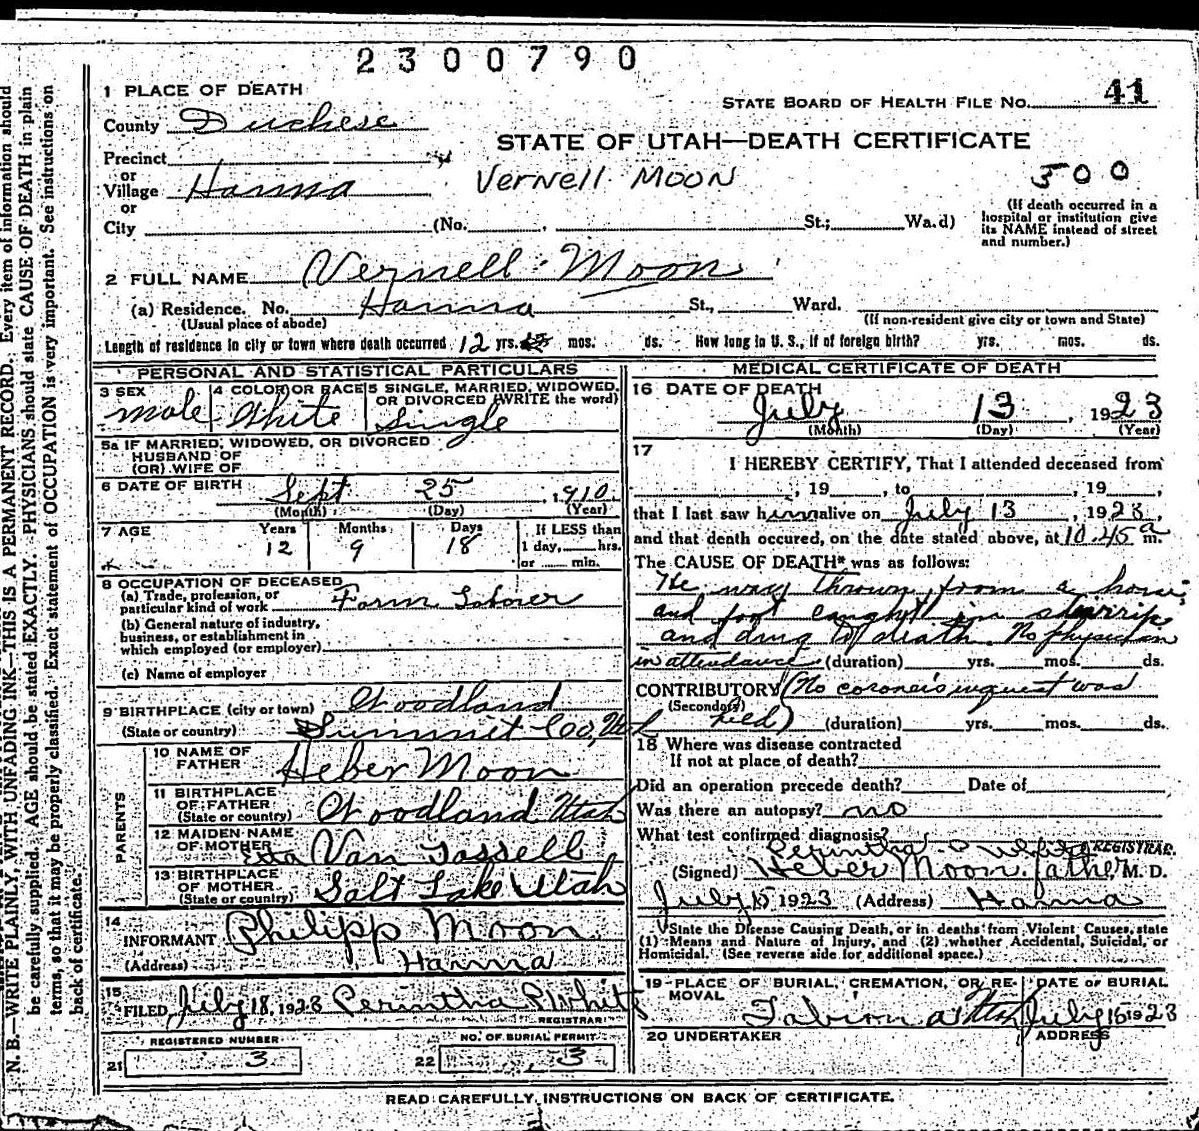 2300790
1 PLACE OF DEATH
STATE BOARD OF HEALTH FILE No. 41
County Duchese
STATE OF UTAH—DEATH CERTIFICATE
Precinct
or
Village Hanna
Vernell Moon
500
or
City (No. St.; Wa.d)
(If death occurred in a
hospital or institution give
its NAME instead of street
and number.)
2 FULL NAME Vernell Moon
(a) Residence. No. Hanna St., Ward.
(Usual place of abode)
(If non-resident give city or town and State)
Length of residence in city or town where death occurred 12 yrs. mos. ds. How long in U. S., if of foreign birth? yrs. mos. ds.
PERSONAL AND STATISTICAL PARTICULARS
3 SEX
Male
4 COLOR OR RACE
White
5 SINGLE, MARRIED, WIDOWED,
OR DIVORCED (WRITE the word)
Single
5a IF MARRIED, WIDOWED, OR DIVORCED
HUSBAND OF
(OR) WIFE OF
6 DATE OF BIRTH Sept 25, 1910
(Month) (Day) (Year)
7 AGE Years Months Days
12 9 18
If LESS than
1 day, hrs.
or min.
8 OCCUPATION OF DECEASED
(a) Trade, profession, or
particular kind of work Farm Laborer
(b) General nature of industry,
business, or establishment in
which employed (or employer)
(c) Name of employer
9 BIRTHPLACE (city or town) Woodland
(State or country) Summit Co, Utah
PARENTS
10 NAME OF
FATHER Heber Moon
11 BIRTHPLACE
OF FATHER
(State or country) Woodland Utah
12 MAIDEN NAME
OF MOTHER Etta Van Tassell
13 BIRTHPLACE
OF MOTHER
(State or country) Salt Lake Utah
14
INFORMANT Philipp Moon
(Address) Hanna
15
FILED July 18, 1923 Perintha P White
REGISTRAR
REGISTERED NUMBER
21 3
NO. OF BURIAL PERMIT
22 3
MEDICAL CERTIFICATE OF DEATH
16 DATE OF DEATH
July 13, 1923
(Month) (Day) (Year)
17
I HEREBY CERTIFY, That I attended deceased from
, 19 , to , 19 ,
that I last saw him alive on July 13, 1923,
and that death occured, on the date stated above, at 10.45 a m.
The CAUSE OF DEATH* was as follows:
He was thrown from a horse
and foot caught in sturrip
and drug to death. No physician
in attendance (duration) yrs. mos. ds.
CONTRIBUTORY (No coroner's inquest was
(Secondary)
held) (duration) yrs. mos. ds.
18 Where was disease contracted
If not at place of death?
Did an operation precede death? Date of
Was there an autopsy? no
What test confirmed diagnosis?
Perintha P White REGISTRAR.
(Signed) Heber Moon father M. D.
July 15 1923 (Address) Hanna
*State the Disease Causing Death, or in deaths from Violent Causes, state
(1) Means and Nature of Injury, and (2) whether Accidental, Suicidal, or
Homicidal. (See reverse side for additional space.)
19 PLACE OF BURIAL, CREMATION, OR RE-
MOVAL
Tabiona Utah
DATE OF BURIAL
July 15 1923
20 UNDERTAKER
ADDRESS
READ CAREFULLY INSTRUCTIONS ON BACK OF CERTIFICATE.
N. B.—WRITE PLAINLY, WITH UNFADING INK—THIS IS A PERMANENT RECORD. Every item of information should
be carefully supplied. AGE should be stated EXACTLY. PHYSICIANS should state CAUSE OF DEATH in plain
terms, so that it may be properly classified. Exact statement of OCCUPATION is very important. See instructions on
back of certificate.